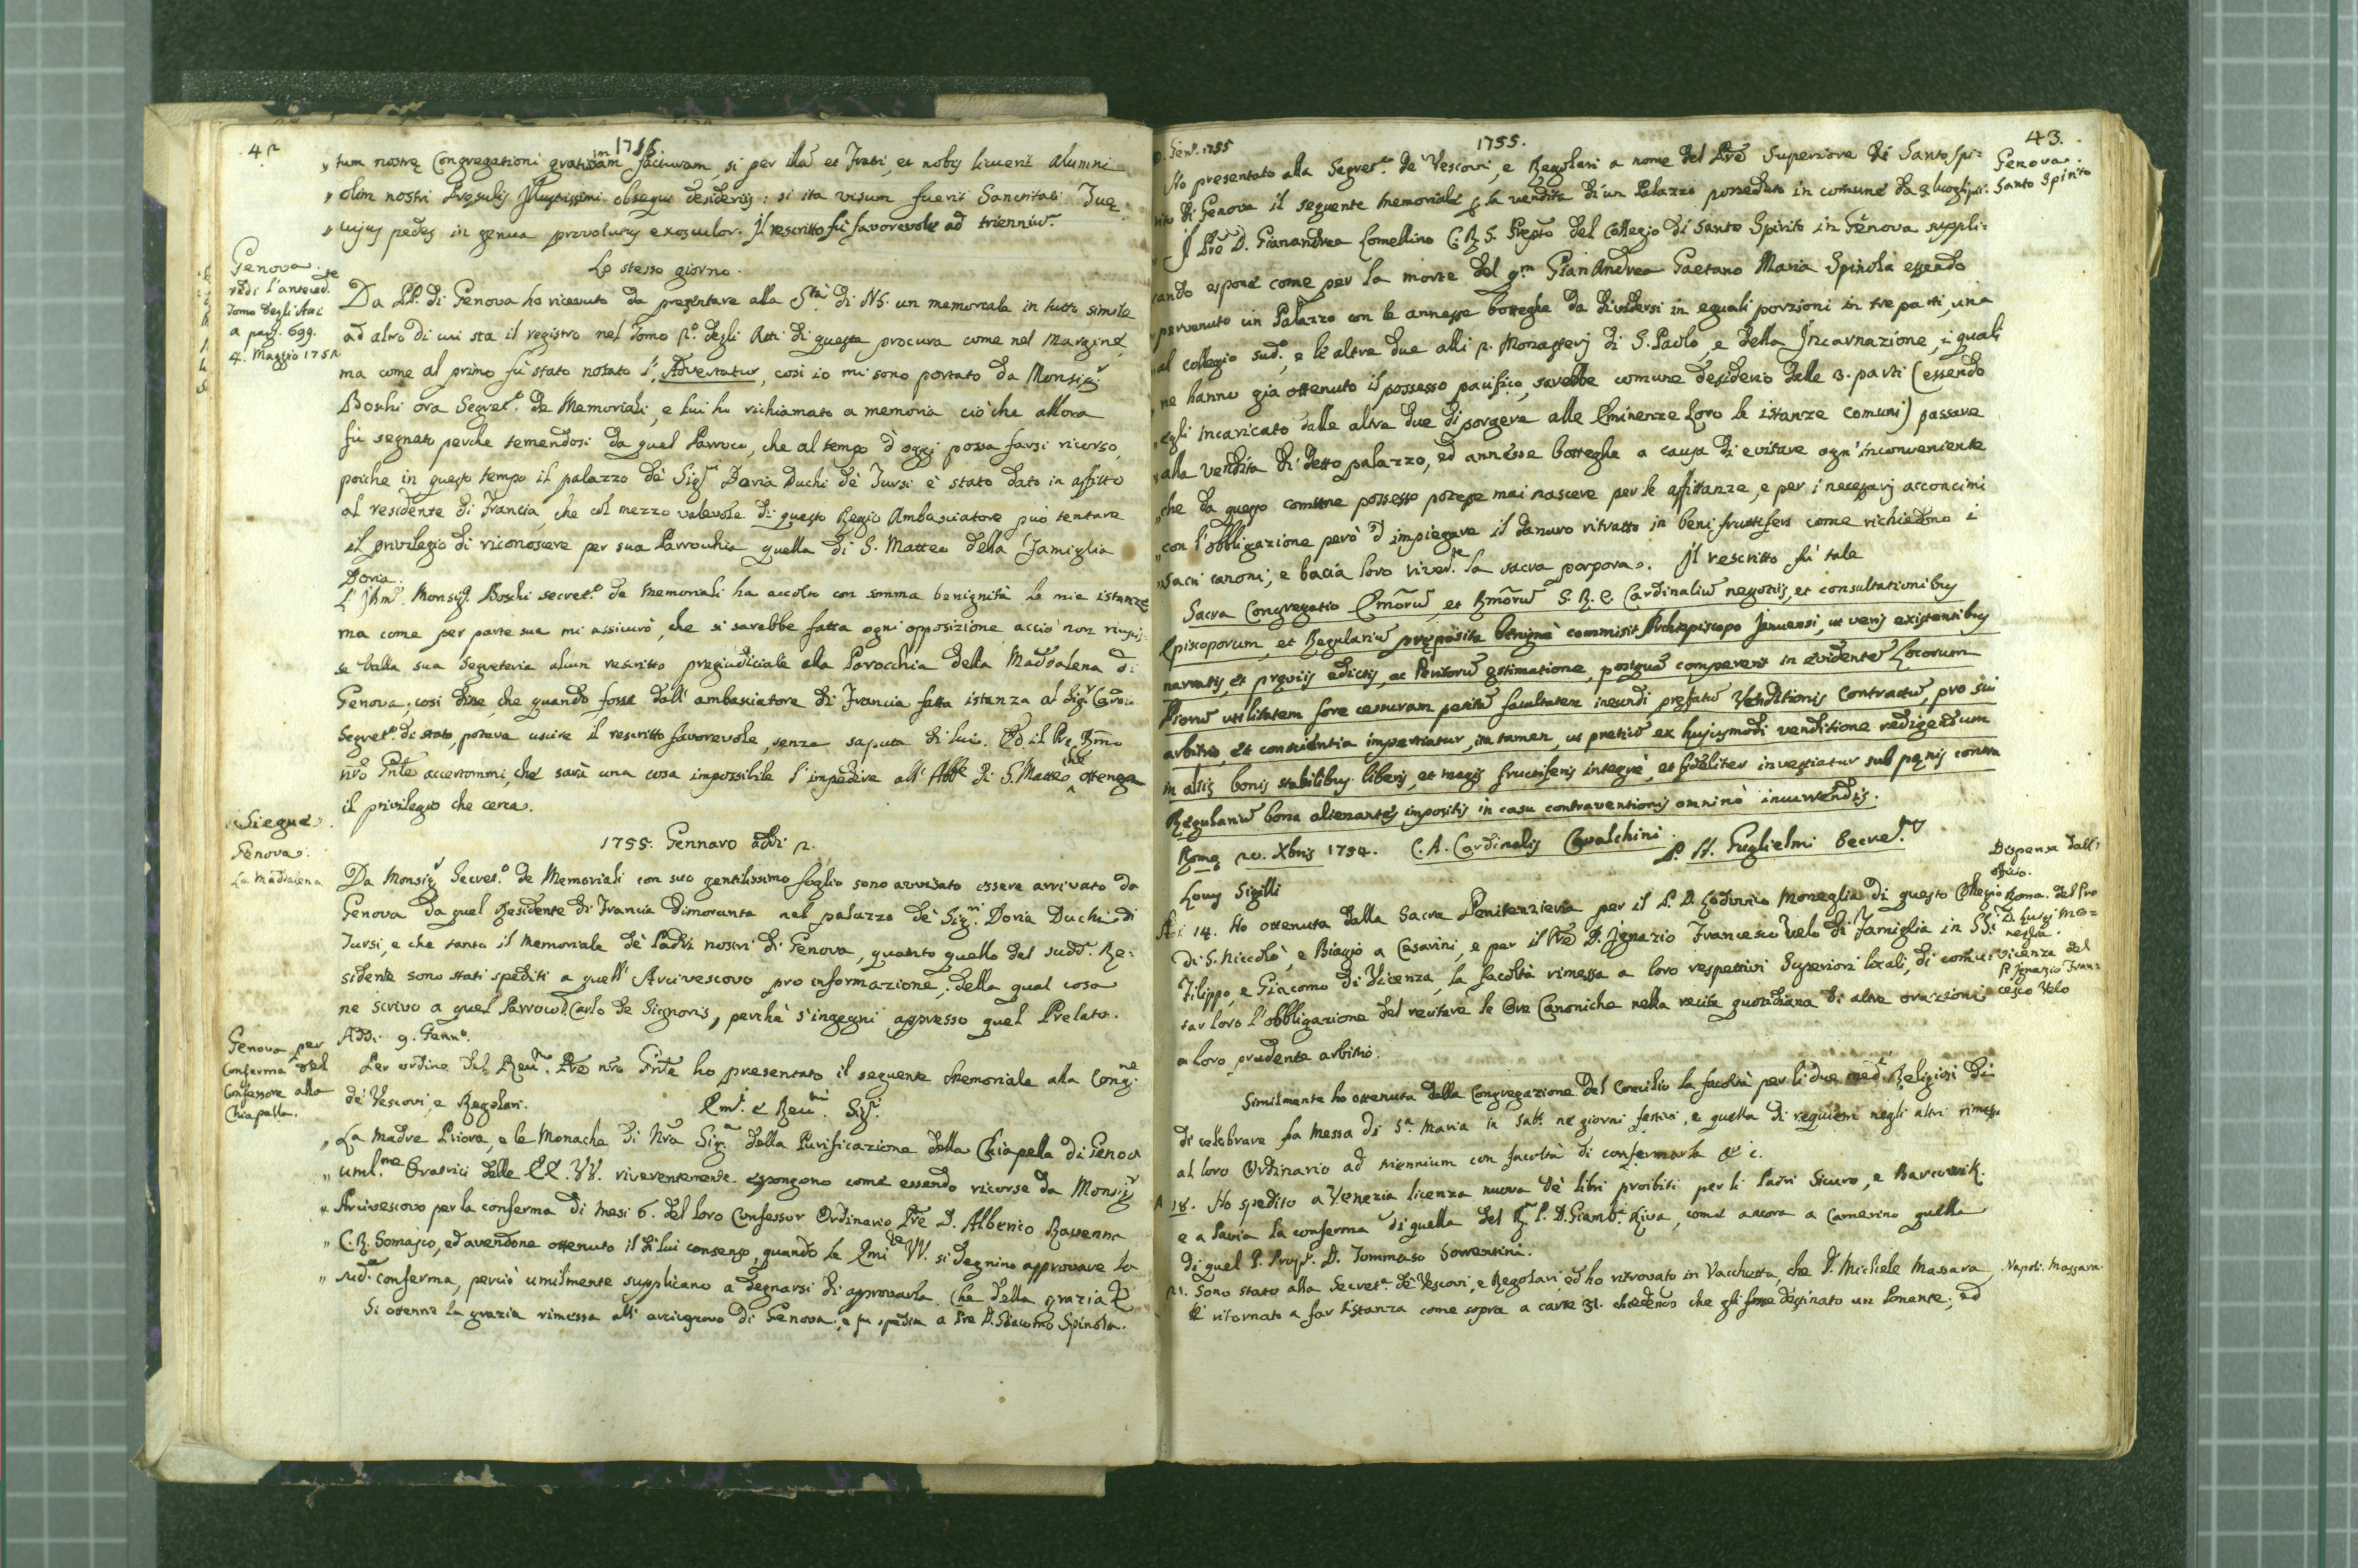 42
1755.
„ tum nostrę Congregationi gratissimam facturam, si per illā et Fratri, et nobis licuerit Alumni
„ olim nostri Presulis Illustrissimi obsequi desideriis: si ita visum fuerit Sanctitati Tuę
„ cujus pedes in genua provolutus exosculor. Il rescritto fù favorevole ad trienniū.
Lo stesso giorno.
Genova.
vedi l'anteced.te
tomo degli Atti
a pag. 699.
4. Maggio 1752
Da PP. di Genova ho ricevuto da presentare alla S.tà di NS. un memoriale in tutto simile
ad altro di cui sta il registro nel Tomo p.o degli Atti di questa procura come nel Margine,
ma come al primo fu stato notato l', Advertatur, così io mi sono portato da Monsig.r
Boschi ora Segret.o de Memoriali, e lui ho richiamato a memoria ciò che allora
fù segnato perche temendosi da quel Parroco, che al tempo d'oggi possa farsi ricorso,
poiche in questo tempo il palazzo de' Sig.ri Doria Duchi de' Tursi è stato dato in affitto
al residente di Francia, che col mezzo valevole di questo Regio Ambasciatore può tentare
il privilegio di riconoscere per sua Parrochia quella di S. Matteo della Famiglia
Doria.
L'Ill.mo Monsig.r Boschi secret.o de memoriali ha accolto con somma benignità le mie istanze
ma come per parte sua mi assicurò, che si sarebbe fatta ogni opposizione acciò non riusis-
se dalla sua Segreteria alcun rescritto pregiudiciale alla Parocchia della Maddalena di
Genova, così disse, che quando fosse dall'ambasciatore di Francia fatta istanza al Sig.r Card.
Segret.o di stato, poteva uscire il rescritto favorevole, senza saputa di lui. Ed il Pre Rmo
nrō Pnte accertommi, che sarà una cosa impossibile l'impedire all'Abbe di S. Matteo che ottenga
il privilegio che cerca.
Siegue.
Genova.
La Maddalena
1755. Gennaro addi 2.
Da Monsig.r Secret.o de Memoriali con suo gentilissimo foglio sono avvisato essere arrivato da
Genova da quel Residente di Francia dimorante nel palazzo de' Sig.ri Doria Duchi di
Tursi, e che tanto il Memoriale de' Padri nostri di Genova, quanto quello del sudd.o Re-
sidente sono stati spediti a quell'Arcivescovo pro informazione; della qual cosa
ne scrivo a quel Parroco D. Carlo de Signoris, perchè s'ingegni appresso quel Prelato.
Genova per
Conferma del
Confessore alla
Chiapella.
Addi 9. Genn.o
Per ordine del Reu.mo Pre nrō Pnte ho presentato il seguente Memoriale alla Cong.ne
de' Vescovi, e Regolari.
Em.i e Reu.mi Sig.ri
„ La Madre Priora, e le Monache di Nrā Sig.a della Purificazione della Chiapella di Genova
„ uml.me Oratrici delle EE. VV. riverentemente espongono come essendo ricorse da Monsig.r
„ Arcivescovo per la conferma di mesi 6. del loro Confessor Ordinario Pre D. Alberico Ravenna
„ C. R. Somasco, ed avendone ottenuto il di lui consenso, quando le Emi.ze VV. si degnino approvare la
„ sud.a conferma, perciò umilmente supplicano a degnarsi di approvarla. Che della grazia &
Si ottenne la grazia rimessa all'arcivescovo di Genova, e fu spedita a Pre D. Giacomo Spinola.
9. Gen.o 1755
1755.
43.
Genova.
Santo Spirito
Ho presentato alla Segret.a de' Vescovi, e Regolari a nome del Pre Superiore di Santo Spi-
rito di Genova il seguente memoriale p la vendita d'un Palazzo posseduto in comune da 3. luoghi pii.
Il Pre D. Gianandrea Lomellino C. R. S. Prepto del Collegio di Santo Spirito in Genova suppli-
cando espone come per la morte del qm Gian Andrea Gaetano Maria Spinola essendo
pervenuto un Palazzo con le annesse botteghe da dividersi in eguali porzioni in tre parti, una
„ al collegio sud.o, e le altre due alli 2. Monasterj di S. Paolo, e della Incarnazione, i quali
„ ne hanno già ottenuto il possesso pacifico, sarebbe comune desiderio delle 3. parti (essendo
„ egli incaricato dalle altre due di porgere alle Eminenze Loro le istanze comuni) passare
„ alla vendita di detto palazzo, ed annesse botteghe a causa di evitare ogn'inconveniente
„ che da questo comune possesso potesse mai nascere per le affittanze, e per i necessarj acconcimi
„ con l'obbligazione però d'impiegare il danaro ritratto in beni fruttiferi come richiedono i
„ sacri canoni; e bacia loro river.te la sacra porpora. Il rescritto fù tale
Sacra Congregatio Emōrū, et Rmōrū S. R. E. Cardinaliū negotiis, et consultationibus
Episcoporum, et Regulariū pręposita benignè commisit Archiepiscopo Januensi, ut veris existentibus
narratis, et pręviis edictis, ac Peritorū ęstimatione, postquā compererit in evidentē Locorum
Piorū utilitatem fore cessuram petitā facultatem ineundi pręfatū Venditionis Contractū, pro sui
arbitrio, et conscientia impertiatur, ita tamen, ut pretiū ex hujusmodi venditione redigendum
in aliis bonis stabilibus liberis, et magis fructiferis integrè, et fideliter investiatur sub pęnis contra
Regulariū bona alienantes impositis in casu contraventionis omninò incurrendis.
Romę 20. Xbris 1754. C. A. Cardinalis Cavalchini.
P. H. Guglielmi Secret.
Locus Sigilli
Dispensa dall'
officio.
Roma. del Pre
D. Luigi Mo-
neglia.
Vicenza del
P. Ignazio Fran-
cesco Velo
Adì 14. Ho ottenuta dalla Sacra Penitenzieria per il P. D. Lodovico Moneglia di questo Collegio
di S. Niccolò, e Biaggio a Cesarini, e per il Pre D. Ignazio Francesco Velo di Famiglia in SS.i
Filippo, e Giacomo di Vicenza, la facoltà rimessa a loro respettivi Superiori locali, di commu-
tar loro l'obbligazione del recitare le Ore Canoniche nella recita quotidiana di altre orazioni
a loro prudente arbitrio.
Similmente ho ottenuta dalla Congregazione del Concilio la facoltà per li due med.i Religiosi di
di celebrare la Messa di S.a Maria in Sab.o ne' giorni festivi, e quella di requiem negli altri rimessa
al loro Ordinario ad triennium con facoltà di confermarla &c.
A 18. Ho spedito a Venezia licenza nuova de' libri proibiti per li Padri Sicuro, e
e a Pavia la conferma di quella del R. P. D. Giamb.a Riva, come ancora a Camerino quella
di quel P. Prop.o D. Tommaso Sorrentini.
Napoli. Massara.
21. Sono stato alla Secret.a de' Vescovi, e Regolari, ed ho ritrovato in Vacchetta, che D. Michele Massara
è ritornato a far l'istanza come sopra a carte 31. chiedendo che gli fosse destinato un Ponente; ed